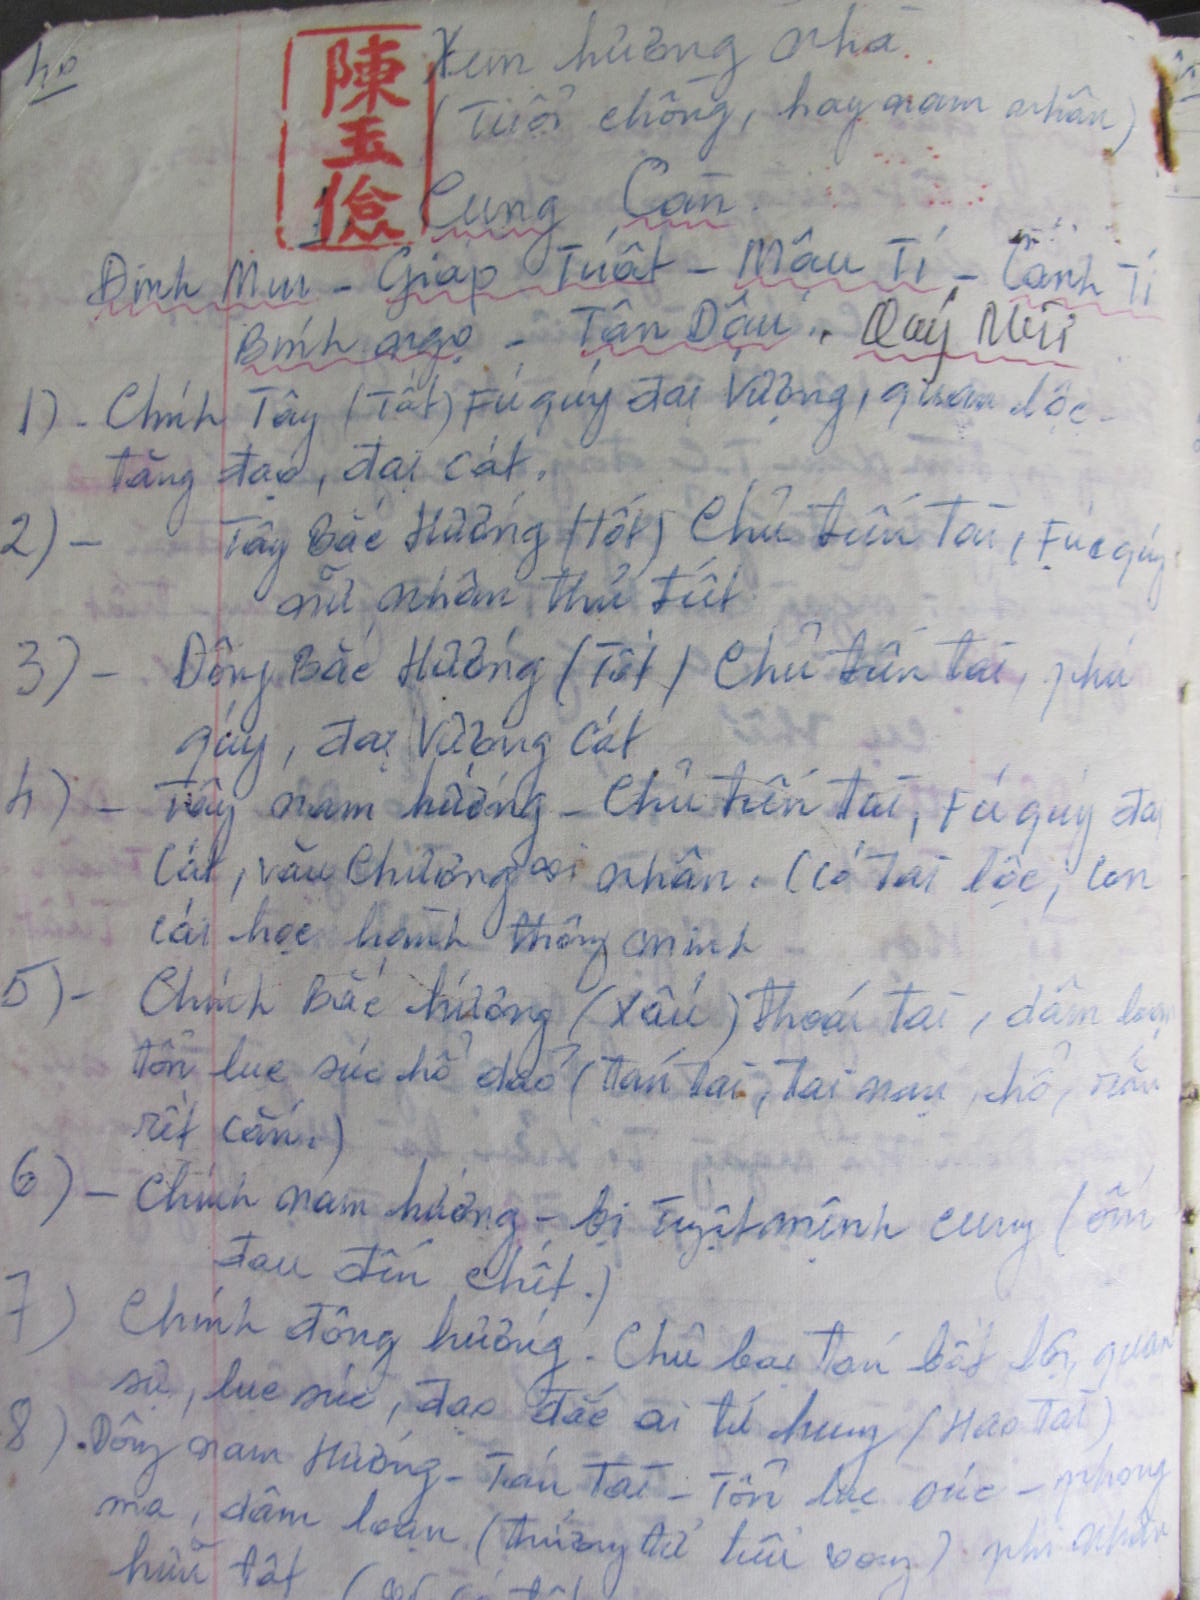 40
陳玉儉
Xem hướng nhà.
(Tuổi chồng, hay nam nhân)
Cung Càn.
Đinh Mùi - Giáp Tuất - Mậu Tí - Canh Tí
Bính ngọ - Tân Dậu. Quý Mùi
1) - Chính Tây (Tốt) Fú quý đại Vượng, quan lộc
tăng đạo, đại cát.
2) - Tây Bắc Hướng (tốt) Chủ tiến Tài, Fúc quý
nữ nhân thủ tiết
3) - Đông Bắc Hướng (Tốt) Chủ tiến tài, phú
qúy, đại Vượng Cát
4) - Tây nam hướng - Chủ tiến tài, Fú qúy đại
Cát, văn Chương nhân. (Có Tài lộc, con
cái học hành thông minh
5) - Chính Bắc hướng (Xấu) thoái tài, dâm loạn
tổn lục súc hổ đảo (tán tài, tai nạn, hổ, rắn
rết cắn.)
6) - Chính nam hướng - bị Tuyệt mệnh cung (ốm
đau đến chết.)
7) Chính đông hướng. Chủ bại tán bất lợi, quan
sự, lục súc, đạo đắc ai tử hung (Hao Tài)
8). Đông nam Hướng - Tán Tài - Tổn lục súc - phong
ma, dâm loạn (thương tử vong) phi nhân
hữu tật